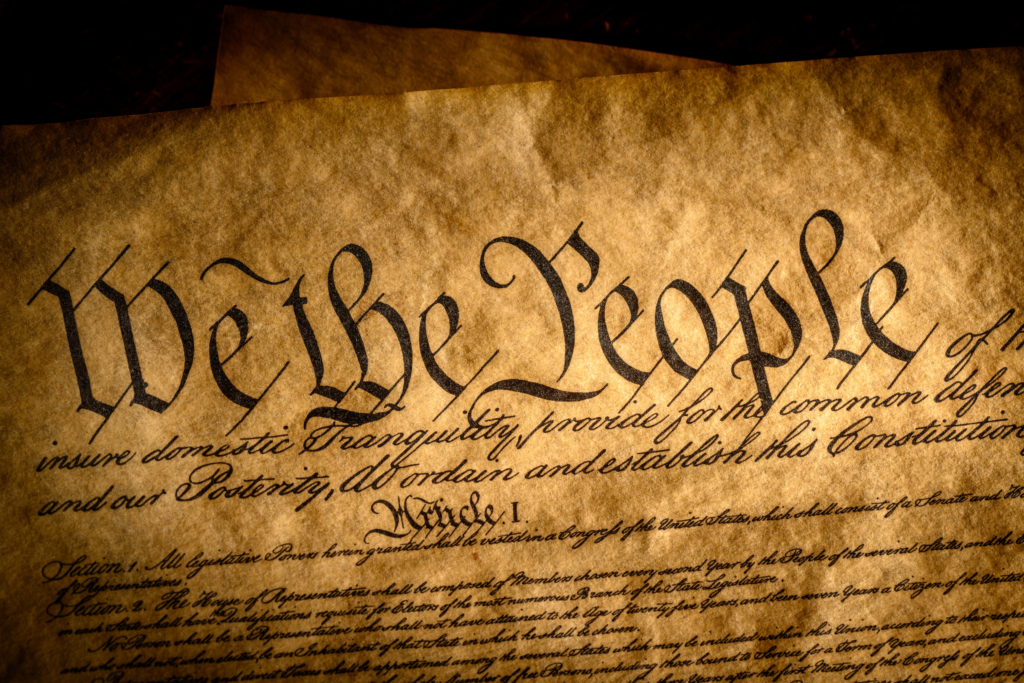 We the People of
insure domestic Tranquility, provide for the common defen
and our Posterity, do ordain and establish this Constitution
Article. I.
Section. 1. All legislative Powers herein granted shall be vested in a Congress of the United States, which shall consist of a Senate and
of Representatives.
Section. 2. The House of Representatives shall be composed of Members chosen every second Year by the People of the several States, and the
in each State shall have the Qualifications requisite for Electors of the most numerous Branch of the State Legislature.
No Person shall be a Representative who shall not have attained to the Age of twenty five Years, and been seven Years a Citizen of the United
and who shall not, when elected, be an Inhabitant of that State in which he shall be chosen.
and direct Taxes shall be apportioned among the several States which may be included within this Union, according to their
Number of free Persons, including those bound to Service for a Term of Years, and excluding
Years after the first Meeting of the Congress of the
shall not exceed one